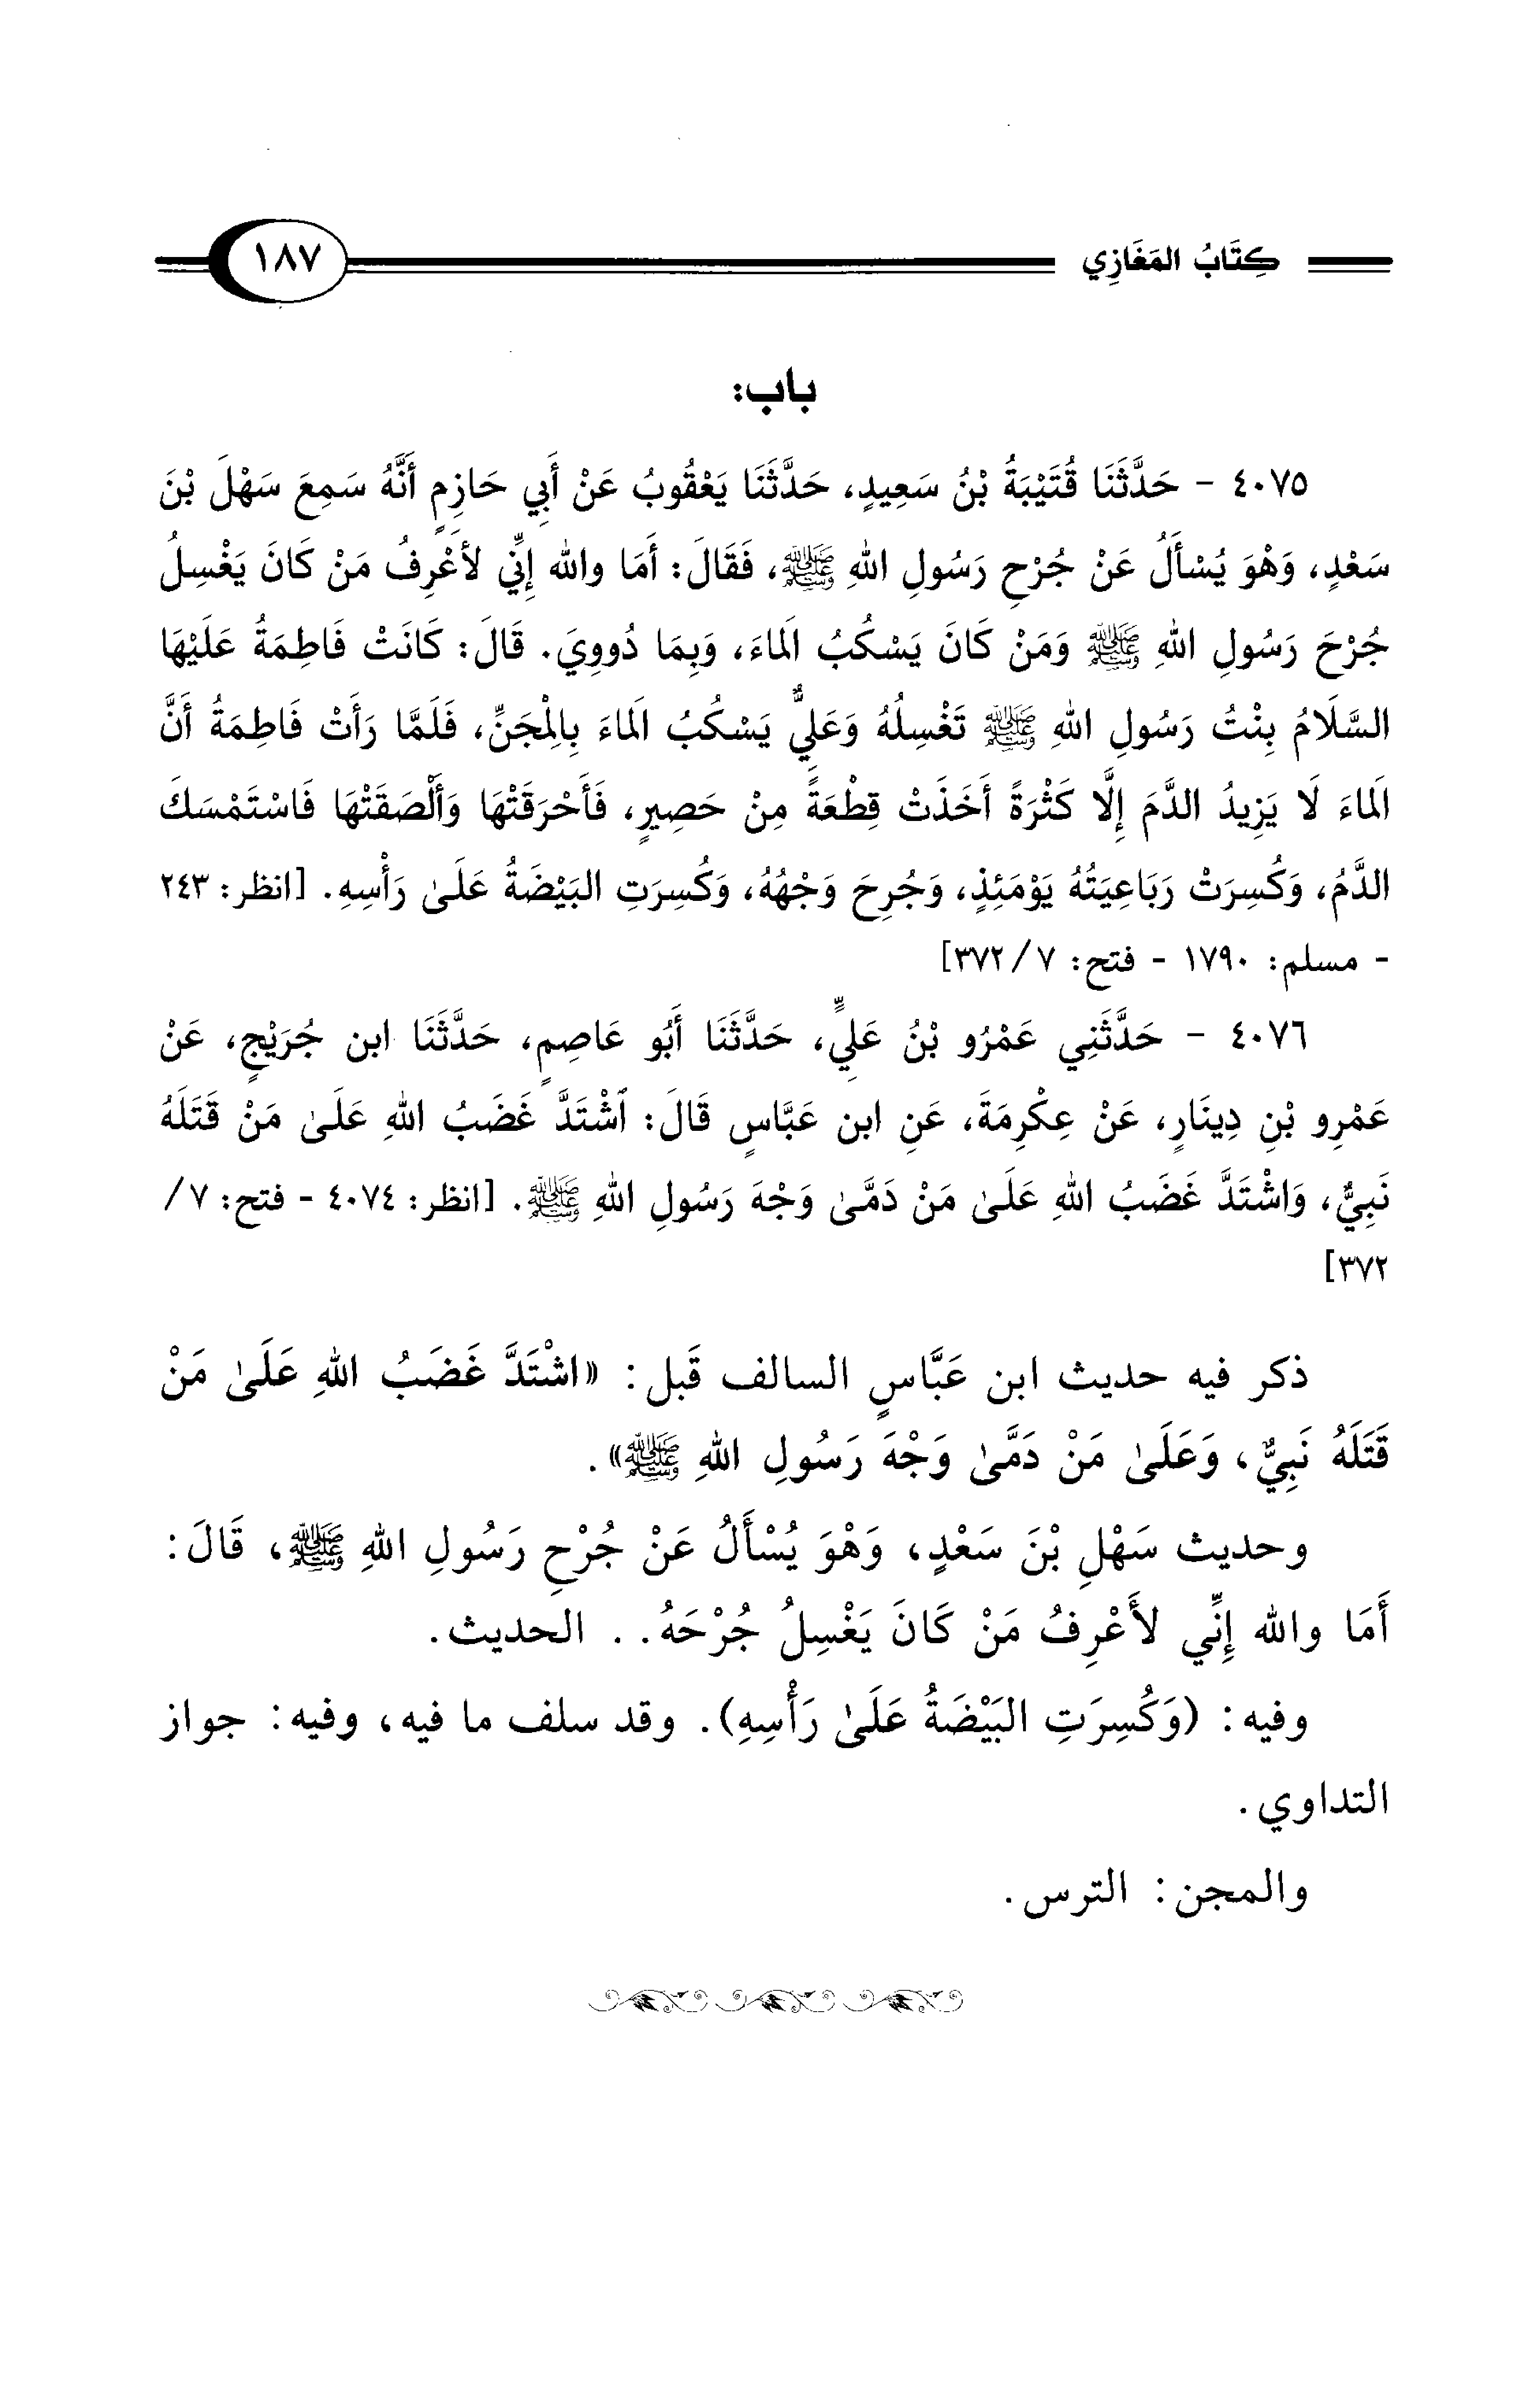 كِتَابُ المَغَازِي ١٨٧
باب:
٤٠٧٥ - حَدَّثَنَا قُتَيْبَةُ بْنُ سَعِيدٍ، حَدَّثَنَا يَعْقُوبُ عَنْ أَبِي حَازِمٍ أَنَّهُ سَمِعَ سَهْلَ بْنَ
سَعْدٍ، وَهْوَ يُسْأَلُ عَنْ جُرْحِ رَسُولِ اللهِ ﷺ، فَقَالَ: أَمَا والله إِنِّي لأَعْرِفُ مَنْ كَانَ يَغْسِلُ
جُرْحَ رَسُولِ اللهِ ﷺ وَمَنْ كَانَ يَسْكُبُ الَماءَ، وَبِمَا دُووِيَ. قَالَ: كَانَتْ فَاطِمَةُ عَلَيْهَا
السَّلَامُ بِنْتُ رَسُولِ اللهِ ﷺ تَغْسِلُهُ وَعَلِيٌّ يَسْكُبُ الَماءَ بِالْمِجَنِّ، فَلَمَّا رَأَتْ فَاطِمَةُ أَنَّ
الَماءَ لَا يَزِيدُ الدَّمَ إِلَّا كَثْرَةً أَخَذَتْ قِطْعَةً مِنْ حَصِيرٍ، فَأَحْرَقَتْهَا وَأَلْصَقَتْهَا فَاسْتَمْسَكَ
الدَّمُ، وَكُسِرَتْ رَبَاعِيَتُهُ يَوْمَئِذٍ، وَجُرِحَ وَجْهُهُ، وَكُسِرَتِ البَيْضَةُ عَلَىٰ رَأْسِهِ. [انظر: ٢٤٣
- مسلم: ١٧٩٠ - فتح: ٧/ ٣٧٢]
٤٠٧٦ - حَدَّثَنِي عَمْرُو بْنُ عَلِيٍّ، حَدَّثَنَا أَبُو عَاصِمٍ، حَدَّثَنَا ابن جُرَيْجٍ، عَنْ
عَمْرِو بْنِ دِينَارٍ، عَنْ عِكْرِمَةَ، عَنِ ابن عَبَّاسٍ قَالَ: ٱشْتَدَّ غَضَبُ اللهِ عَلَىٰ مَنْ قَتَلَهُ
نَبِيٌّ، وَاشْتَدَّ غَضَبُ اللهِ عَلَىٰ مَنْ دَمَّىٰ وَجْهَ رَسُولِ اللهِ ﷺ. [انظر: ٤٠٧٤ - فتح: ٧/
٣٧٢]
ذكر فيه حديث ابن عَبَّاسٍ السالف قَبل: «اشْتَدَّ غَضَبُ اللهِ عَلَىٰ مَنْ
قَتَلَهُ نَبِيٌّ، وَعَلَىٰ مَنْ دَمَّىٰ وَجْهَ رَسُولِ اللهِ ﷺ».
وحديث سَهْلِ بْنَ سَعْدٍ، وَهْوَ يُسْأَلُ عَنْ جُرْحِ رَسُولِ اللهِ ﷺ، قَالَ:
أَمَا والله إِنِّي لأَعْرِفُ مَنْ كَانَ يَغْسِلُ جُرْحَهُ. . الحديث.
وفيه: (وَكُسِرَتِ البَيْضَةُ عَلَىٰ رَأْسِهِ). وقد سلف ما فيه، وفيه: جواز
التداوي.
والمجن: الترس.